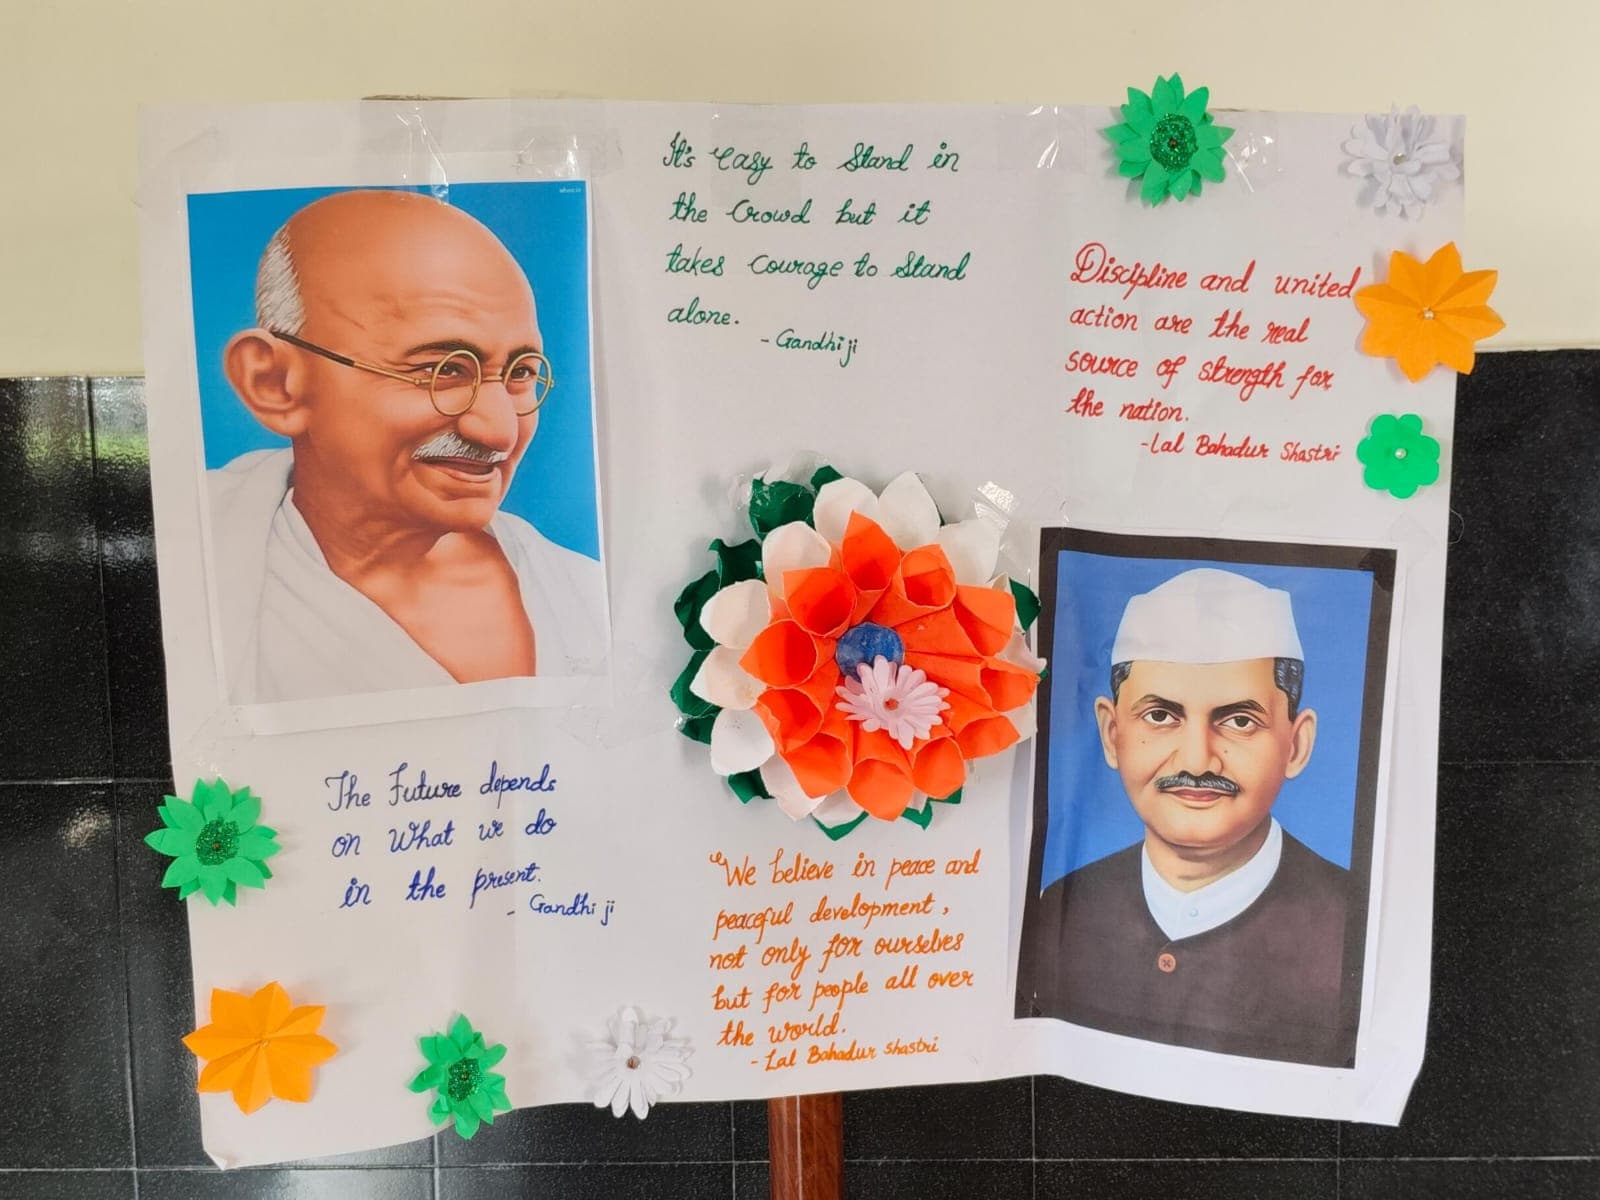 It's easy to Stand in
the Crowd but it
takes Courage to Stand
alone.
- Gandhi ji
Discipline and united
action are the real
source of strength for
the nation.
-Lal Bahadur Shastri
The Future depends
on What we do
in the present.
- Gandhi ji
"We believe in peace and
peaceful development,
not only for ourselves
but for people all over
the world.
- Lal Bahadur shastri